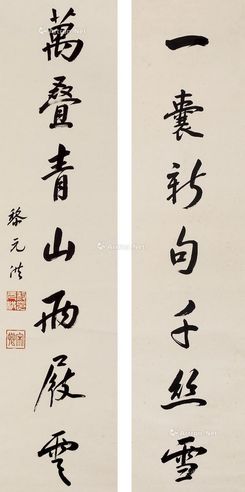 一囊新句千丝雪
萬叠青山两屐雲
黎元洪